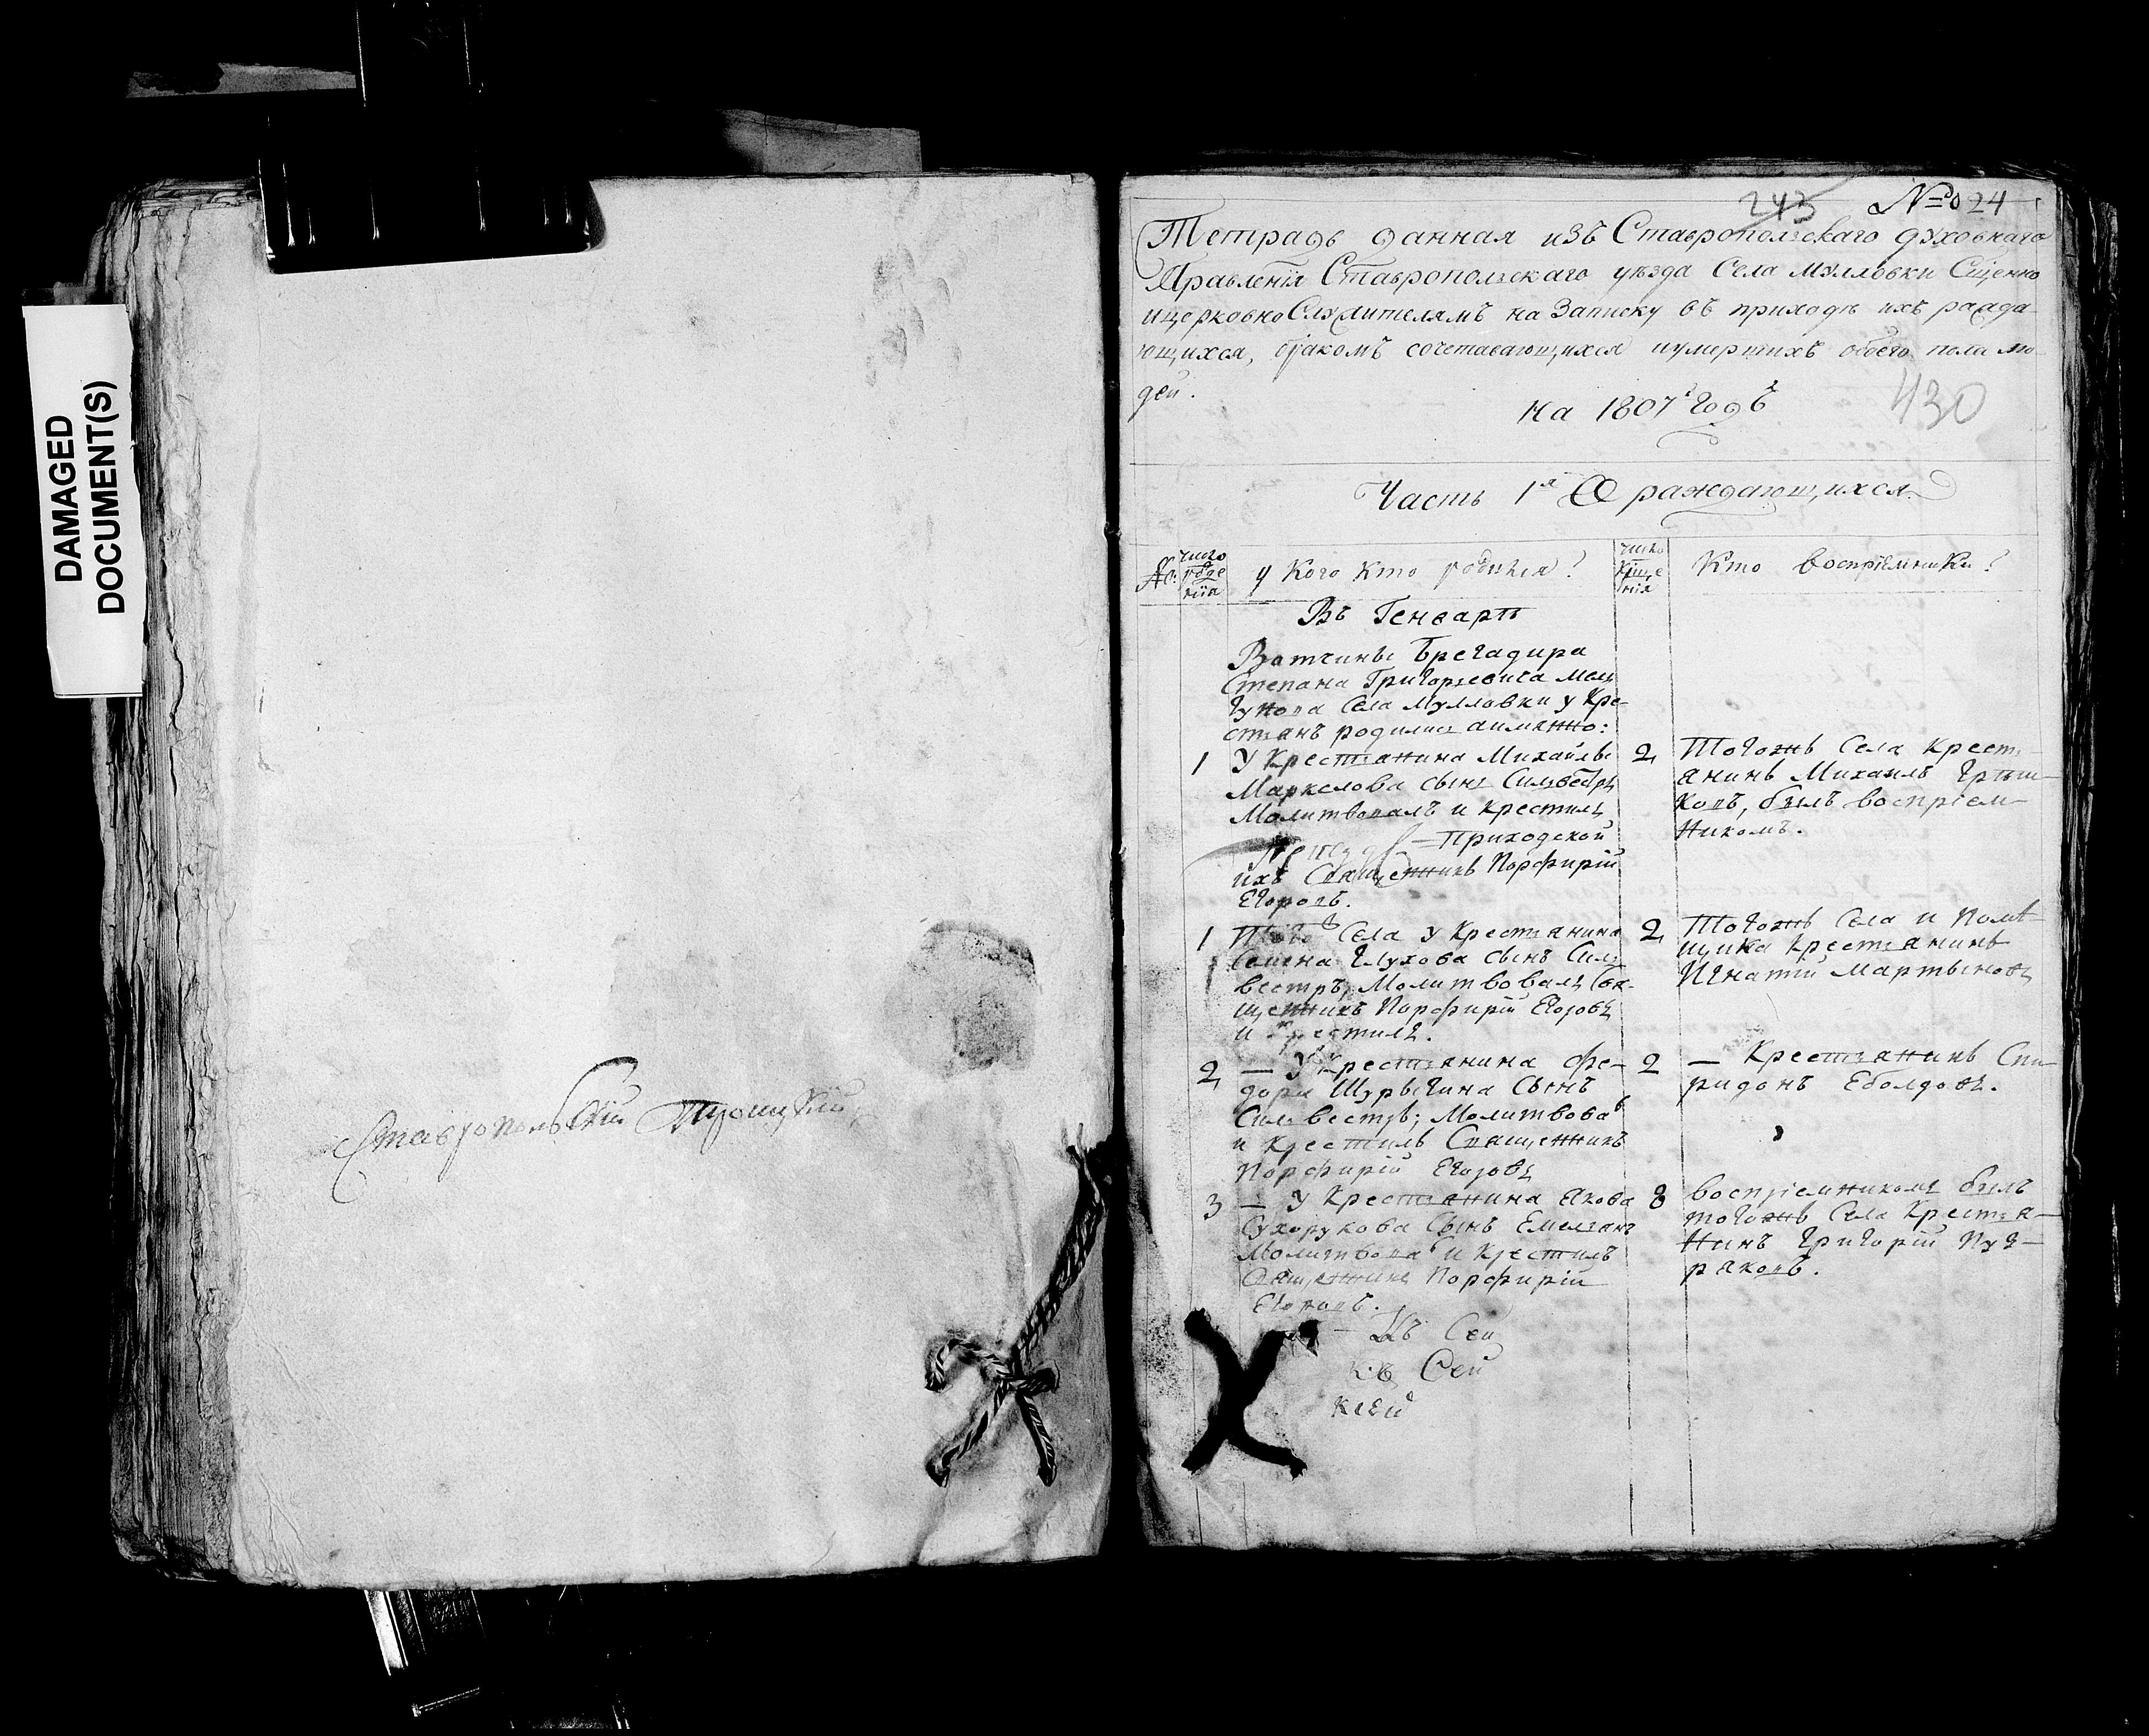 DAMAGED
DOCUMENT(S)
Ставропольскій
243 № 24
Тетрадь данная изъ Ставропольскаго духовнаго
Правленія Ставропольскаго уѣзда Села Мулловки Сщенно
ицерковно Служителямъ на Записку въ приходѣ ихъ ражда
ющихся, бракомъ сочетавающихся иумершихъ обоего пола лю
дей.
на 1807 годъ
430
Часть 1я О раждающихся
№ число рожденія
у Кого Кто родился?
число крещенія
Кто воспріемники?
Въ Генварѣ
Вотчины Брегадира
Степана Григорьевича Мел
гунова Села Мулловки у Кре-
стьянъ родились аимянно:
1 У Крестьянина Михайлы
Маркелова сынъ Сильвестръ
Молитвовалъ и крестилъ
Приходской
ихъ Священникъ Порфирій
Егоровъ.
2 Тогожъ Села Крестъ-
янинъ Михаилъ
ковъ, былъ воспріем-
никомъ.
1 Села у Крестьянина
Семена Глухова сынъ Силь
вестръ, Молитвовалъ Свя-
щенникъ Порфирій Егоровъ
и крестилъ.
2 Тогожъ Села и Помѣ-
щика Крестьянинъ
Игнатій Мартыновъ
2 — У Крестьянина Фе-
дора Шурыгина Сынъ
Сильвестръ; Молитвова
и Крестилъ Священникъ
Порфирій Егоровъ
2 — Крестьянинъ Спи-
ридонъ Еболдовъ.
3 — У Крестьянина Якова
Сухорукова Сынъ Емельянъ
Молитвова и Крестилъ
Священникъ Порфирій
Егоровъ.
8 воспріемникомъ былъ
тогожъ Села Крестья-
нинъ Григорій Пуз-
раковъ.
Къ Сей
къ Сей
ксей